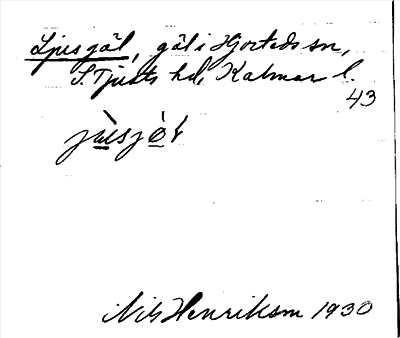 Ljusgöl, göl i Hjorteds sn,
S. Tjusts hd, Kalmar l.
43
Nils Henriksson 1930